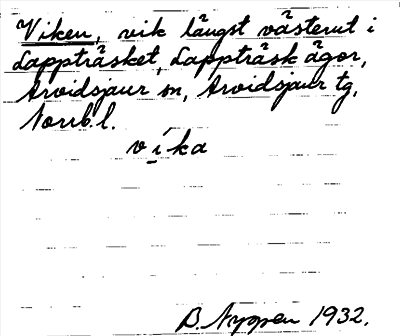 Viken, vik längst västerut i
Lappträsket, Lappträsk ägor,
Arvidsjaur sn, Arvidsjaur tg,
Norrb. l.
ví̲ka
B. Nygren 1932.